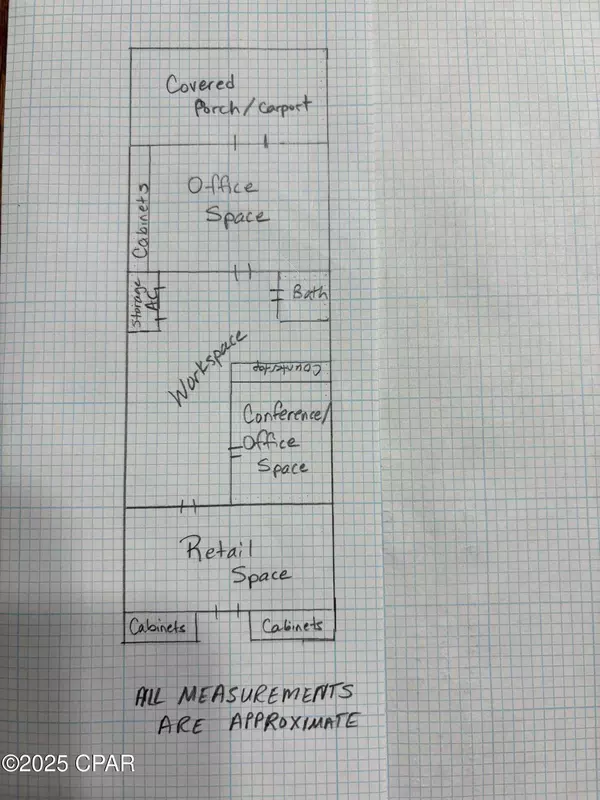 Covered
Porch/Carport
Cabinets
Office
Space
Storage
AC
Bath
Workspace
Countertop
Conference/
Office
Space
Retail
Space
Cabinets
Cabinets
ALL MEASUREMENTS
ARE APPROXIMATE
©2025 CPAR